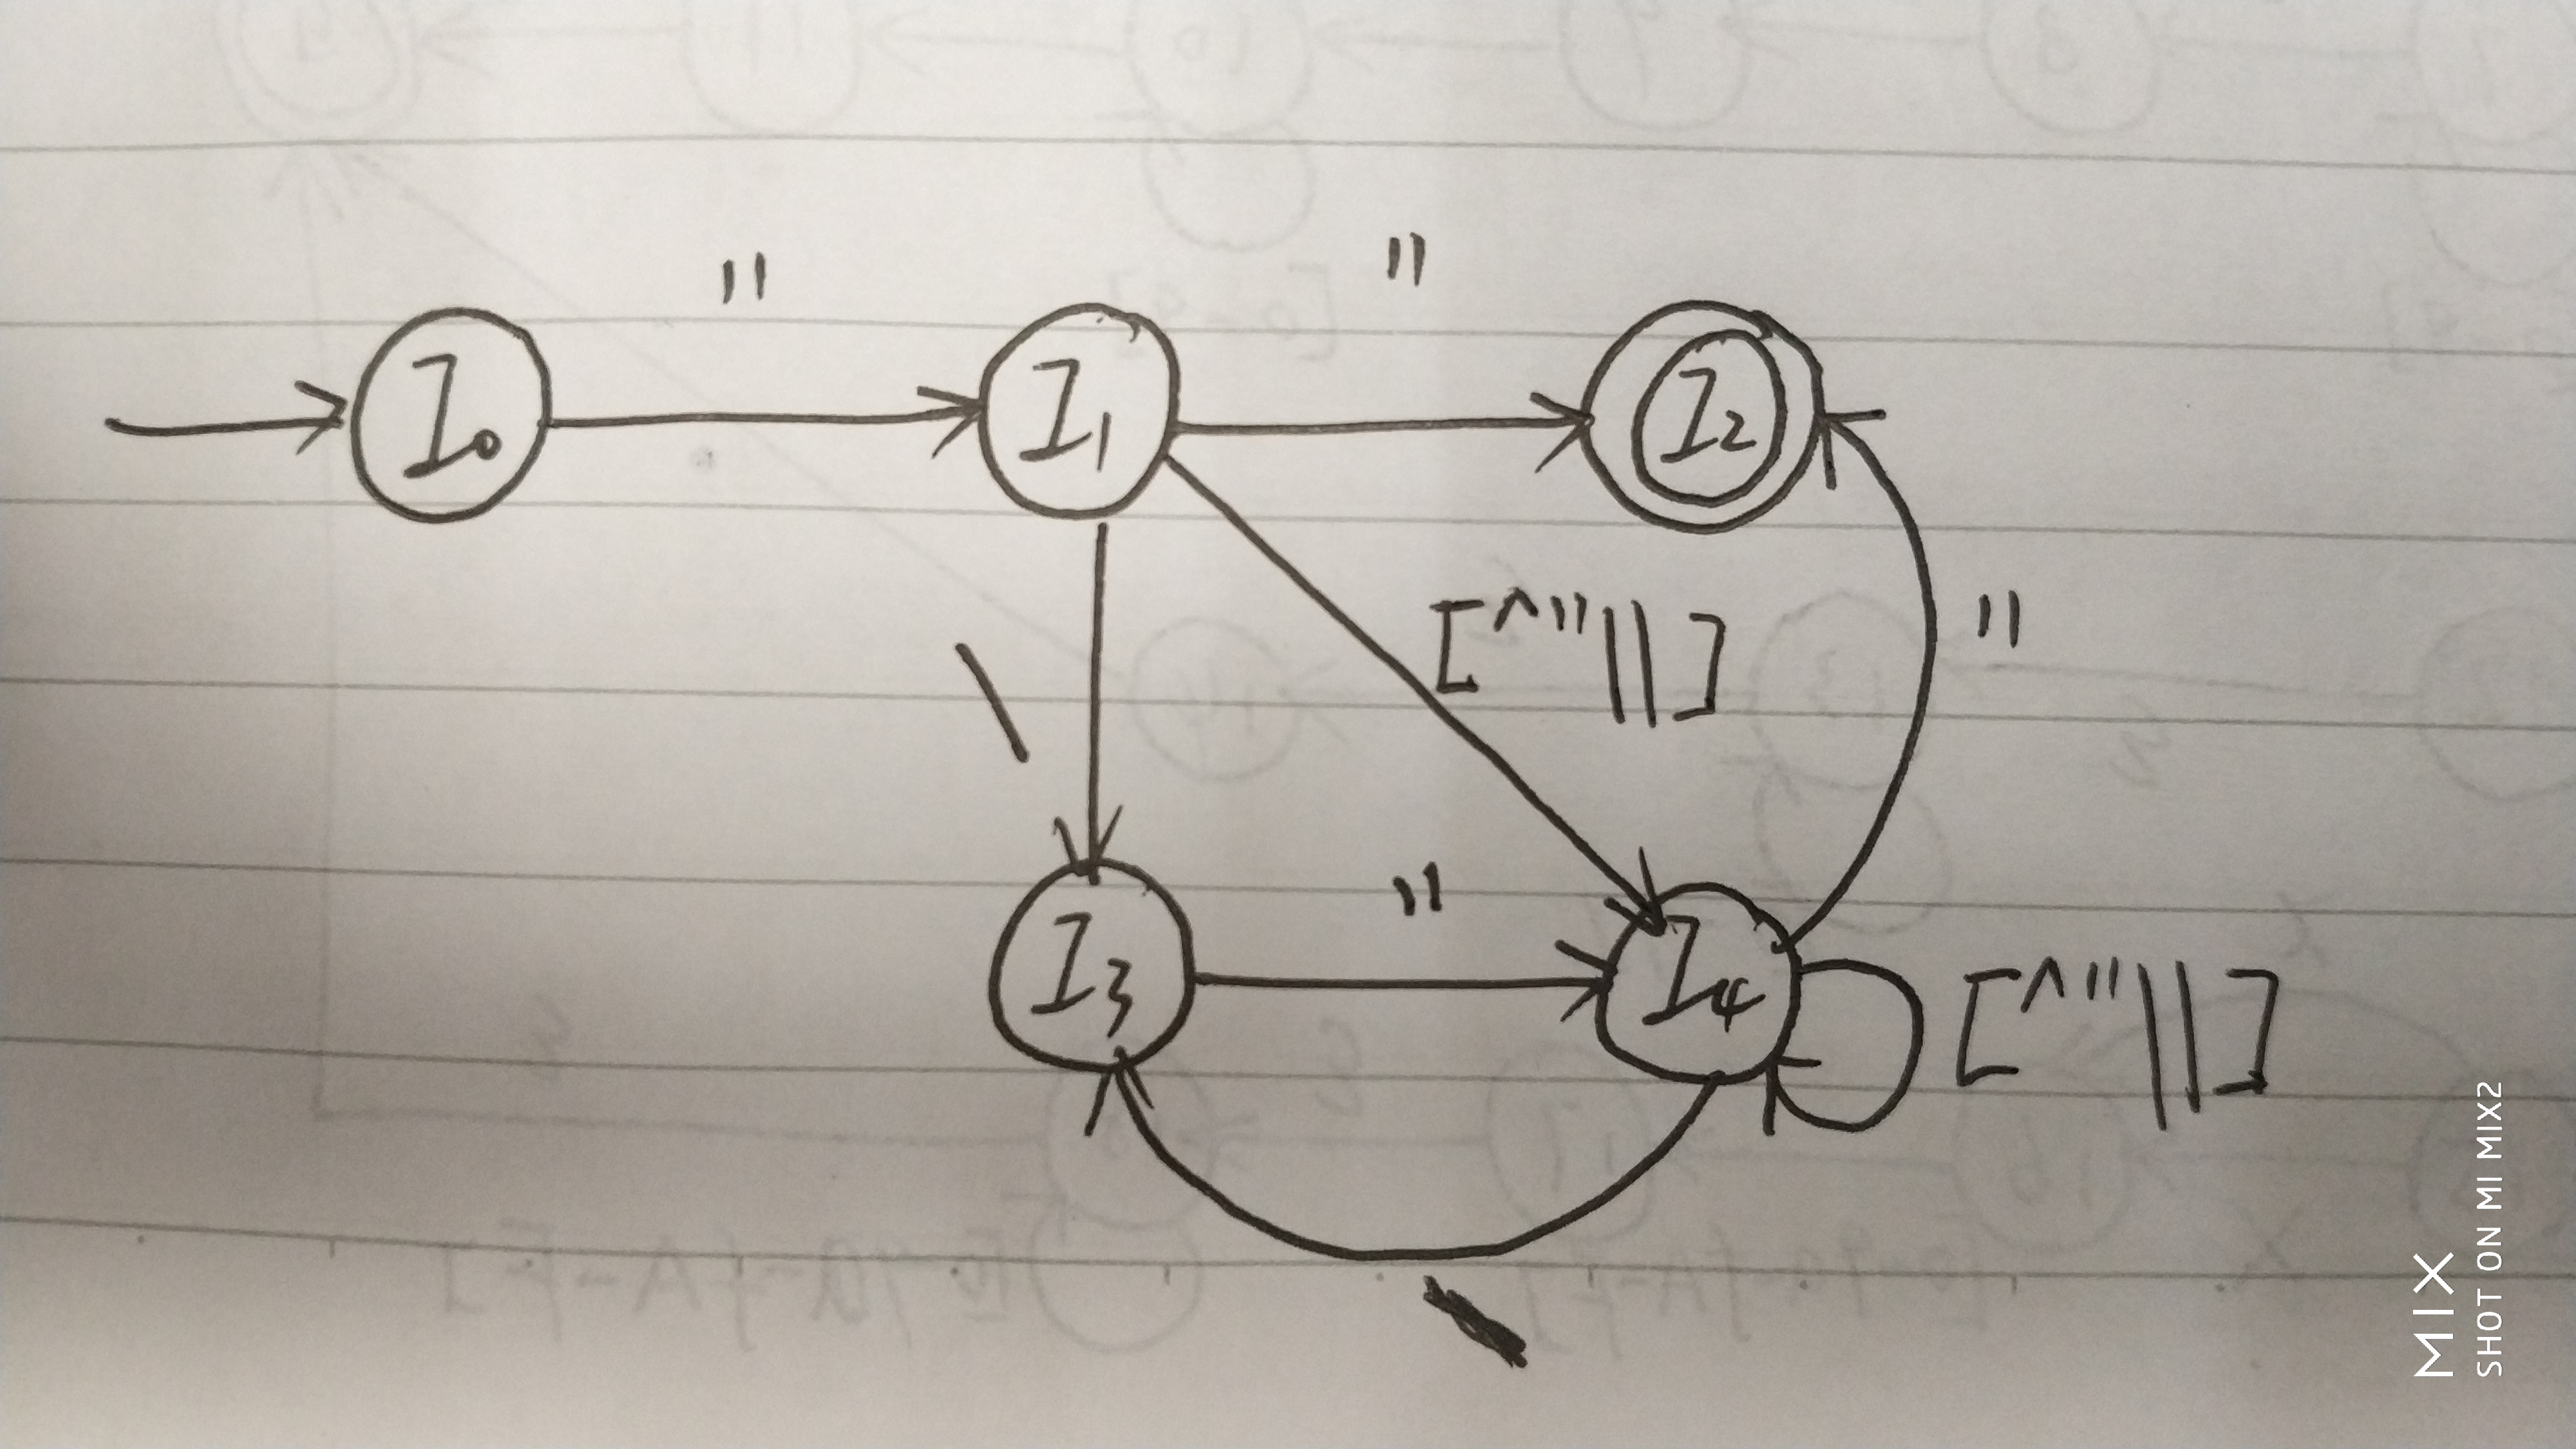 " "
I₀ I₁ I₂
\ [^"\\] "
"
I₃ I₄ [^"\\]
\
MIX
SHOT ON MI MIX2